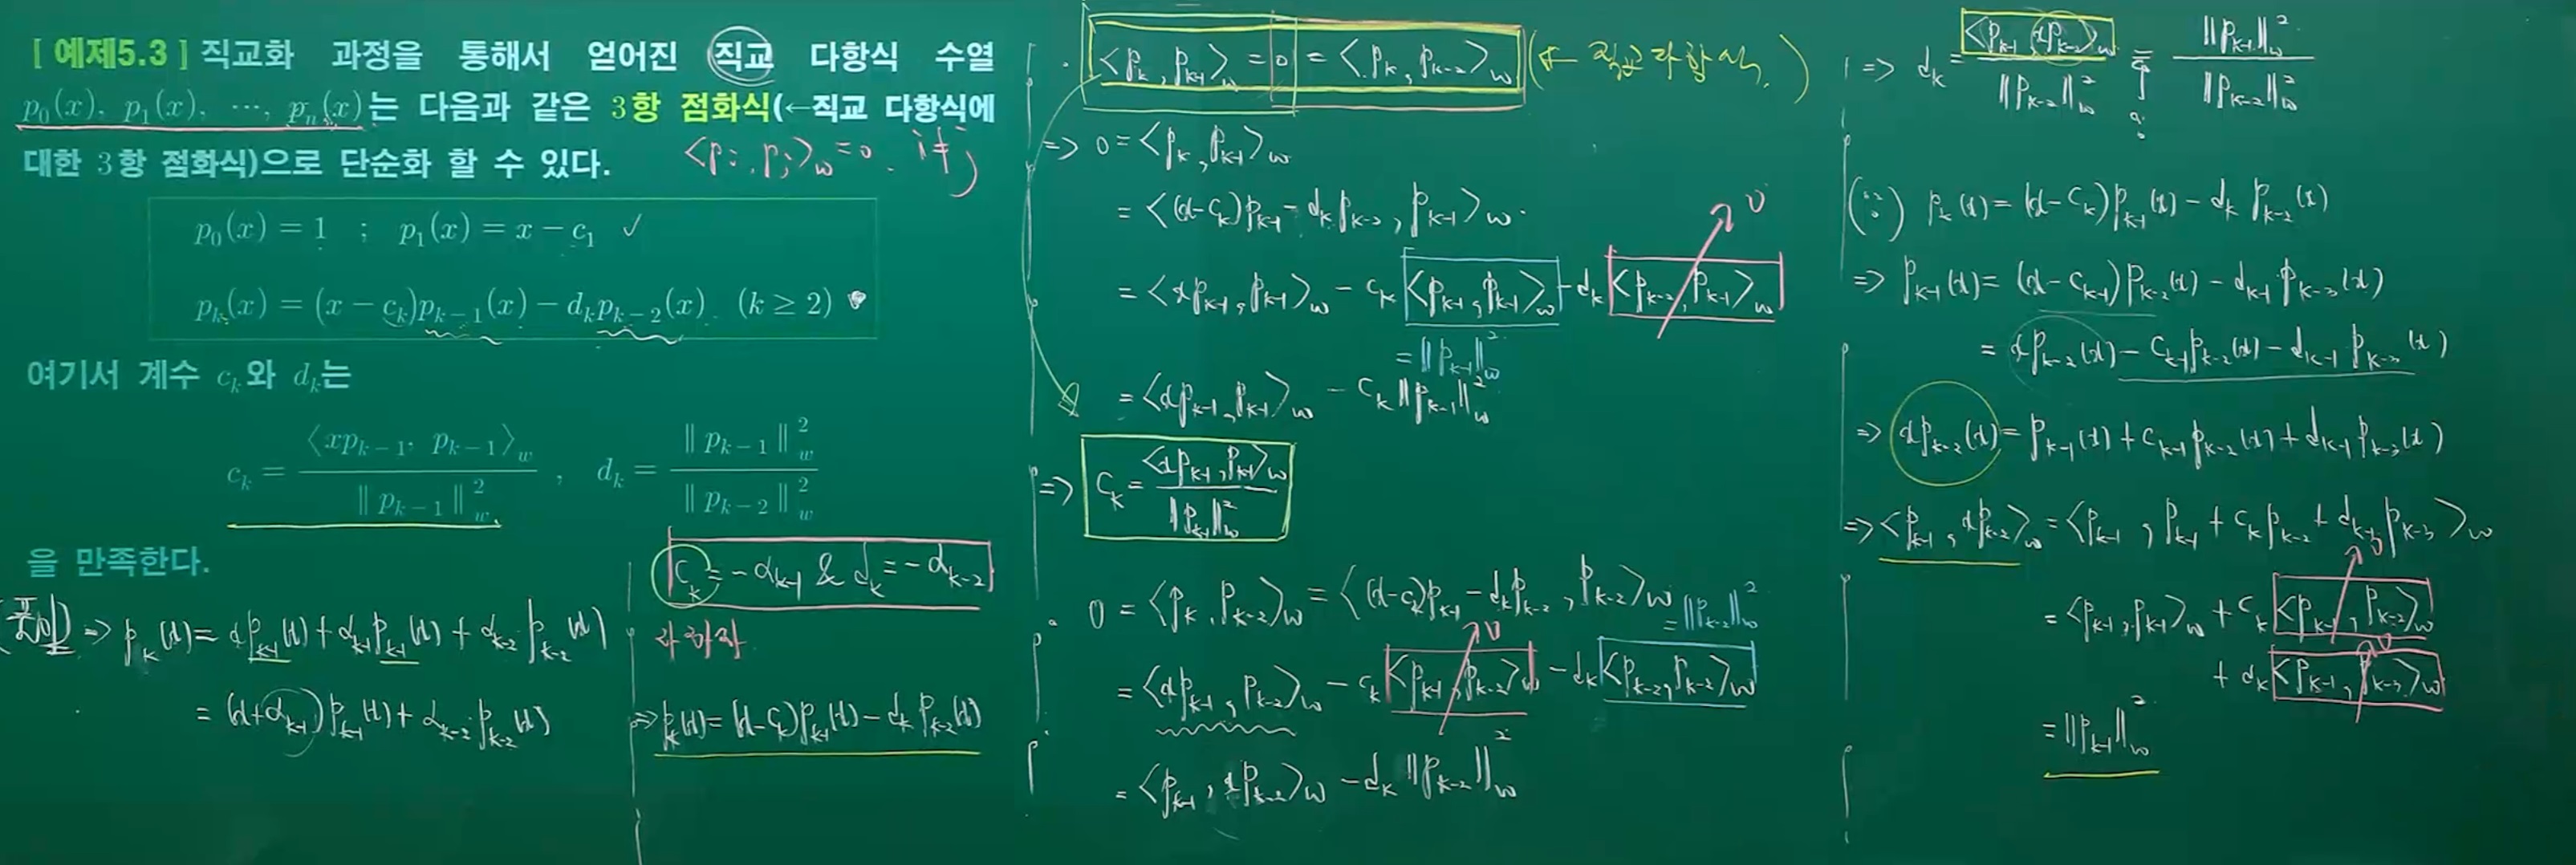 [ 예제5.3 ] 직교화 과정을 통해서 얻어진 직교 다항식 수열
p₀(x), p₁(x), ⋯, pₙ(x)는 다음과 같은 3항 점화식(←직교 다항식에
대한 3항 점화식)으로 단순화 할 수 있다.
<pᵢ, pⱼ>_w = 0, i≠j
p₀(x) = 1 ; p₁(x) = x − c₁ ✓
p_k(x) = (x − c_k)p_{k−1}(x) − d_k p_{k−2}(x) (k ≥ 2)
여기서 계수 c_k와 d_k는
c_k = ⟨xp_{k−1}, p_{k−1}⟩_w / ‖p_{k−1}‖²_w , d_k = ‖p_{k−1}‖²_w / ‖p_{k−2}‖²_w
을 만족한다.
(풀이) => p_k(x) = xp_{k-1}(x) + α_{k-1}p_{k-1}(x) + α_{k-2}p_{k-2}(x)
= (x+α_{k-1})p_{k-1}(x) + α_{k-2}p_{k-2}(x)
c_k = -α_{k-1} & d_k = -α_{k-2}
라 하자
=> p_k(x) = (x-c_k)p_{k-1}(x) - d_k p_{k-2}(x)
<p_k, p_{k-1}>_w = 0 = <p_k, p_{k-2}>_w (← 직교다항식.)
=> 0 = <p_k, p_{k-1}>_w
= <(x-c_k)p_{k-1} - d_k p_{k-2}, p_{k-1}>_w
= <xp_{k-1}, p_{k-1}>_w - c_k <p_{k-1}, p_{k-1}>_w - d_k <p_{k-2}, p_{k-1}>_w 0
= ‖p_{k-1}‖²_w
= <xp_{k-1}, p_{k-1}>_w - c_k ‖p_{k-1}‖²_w
=> c_k = <xp_{k-1}, p_{k-1}>_w / ‖p_{k-1}‖²_w
0 = <p_k, p_{k-2}>_w = <(x-c_k)p_{k-1} - d_k p_{k-2}, p_{k-2}>_w
= ‖p_{k-2}‖²_w
= <xp_{k-1}, p_{k-2}>_w - c_k <p_{k-1}, p_{k-2}>_w 0 - d_k <p_{k-2}, p_{k-2}>_w
= <p_{k-1}, xp_{k-2}>_w - d_k ‖p_{k-2}‖²_w
=> d_k = <p_{k-1}, xp_{k-2}>_w / ‖p_{k-2}‖²_w = ‖p_{k-1}‖²_w / ‖p_{k-2}‖²_w
(∵) p_k(x) = (x-c_k)p_{k-1}(x) - d_k p_{k-2}(x)
=> p_{k-1}(x) = (x-c_{k-1})p_{k-2}(x) - d_{k-1} p_{k-3}(x)
= xp_{k-2}(x) - c_{k-1}p_{k-2}(x) - d_{k-1} p_{k-3}(x)
=> xp_{k-2}(x) = p_{k-1}(x) + c_{k-1}p_{k-2}(x) + d_{k-1}p_{k-3}(x)
=> <p_{k-1}, xp_{k-2}>_w = <p_{k-1}, p_{k-1} + c_k p_{k-2} + d_{k-1} p_{k-3}>_w
= <p_{k-1}, p_{k-1}>_w + c_k <p_{k-1}, p_{k-2}>_w 0
+ d_k <p_{k-1}, p_{k-3}>_w 0
= ‖p_{k-1}‖²_w